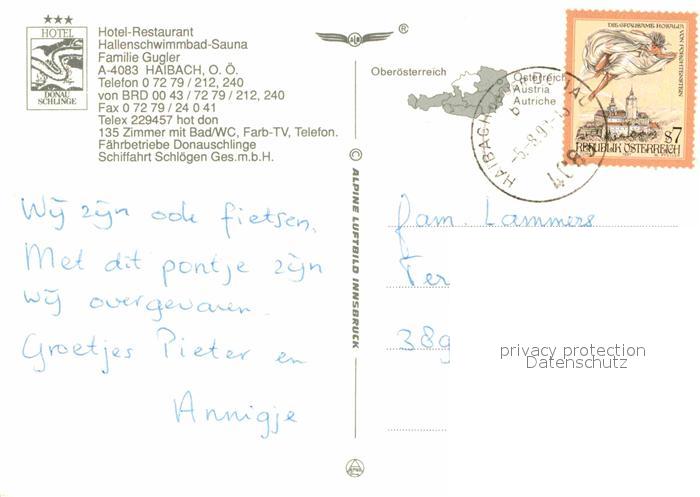 ★★★
HOTEL
DONAU
SCHLINGE
Hotel-Restaurant
Hallenschwimmbad-Sauna
Familie Gugler
A-4083 HAIBACH, O. Ö.
Telefon 0 72 79 / 212, 240
von BRD 00 43 / 72 79 / 212, 240
Fax 0 72 79 / 24 0 41
Telex 229457 hot don
135 Zimmer mit Bad/WC, Farb-TV, Telefon.
Fährbetriebe Donauschlinge
Schiffahrt Schlögen Ges.m.b.H.
Wij zijn ook fietsen.
Met dit pontje zijn
wij overgevaren.
Groetjes Pieter en
Annigje
© ALPINE LUFTBILD INNSBRUCK
®
Oberösterreich
Österreich
Austria
Autriche
DIE GRAUSAME ROSALIA
VON FORCHTENSTEIN
S7
REPUBLIK ÖSTERREICH
HAIBACH
Fam. Lammers
Ter
389
privacy protection
Datenschutz